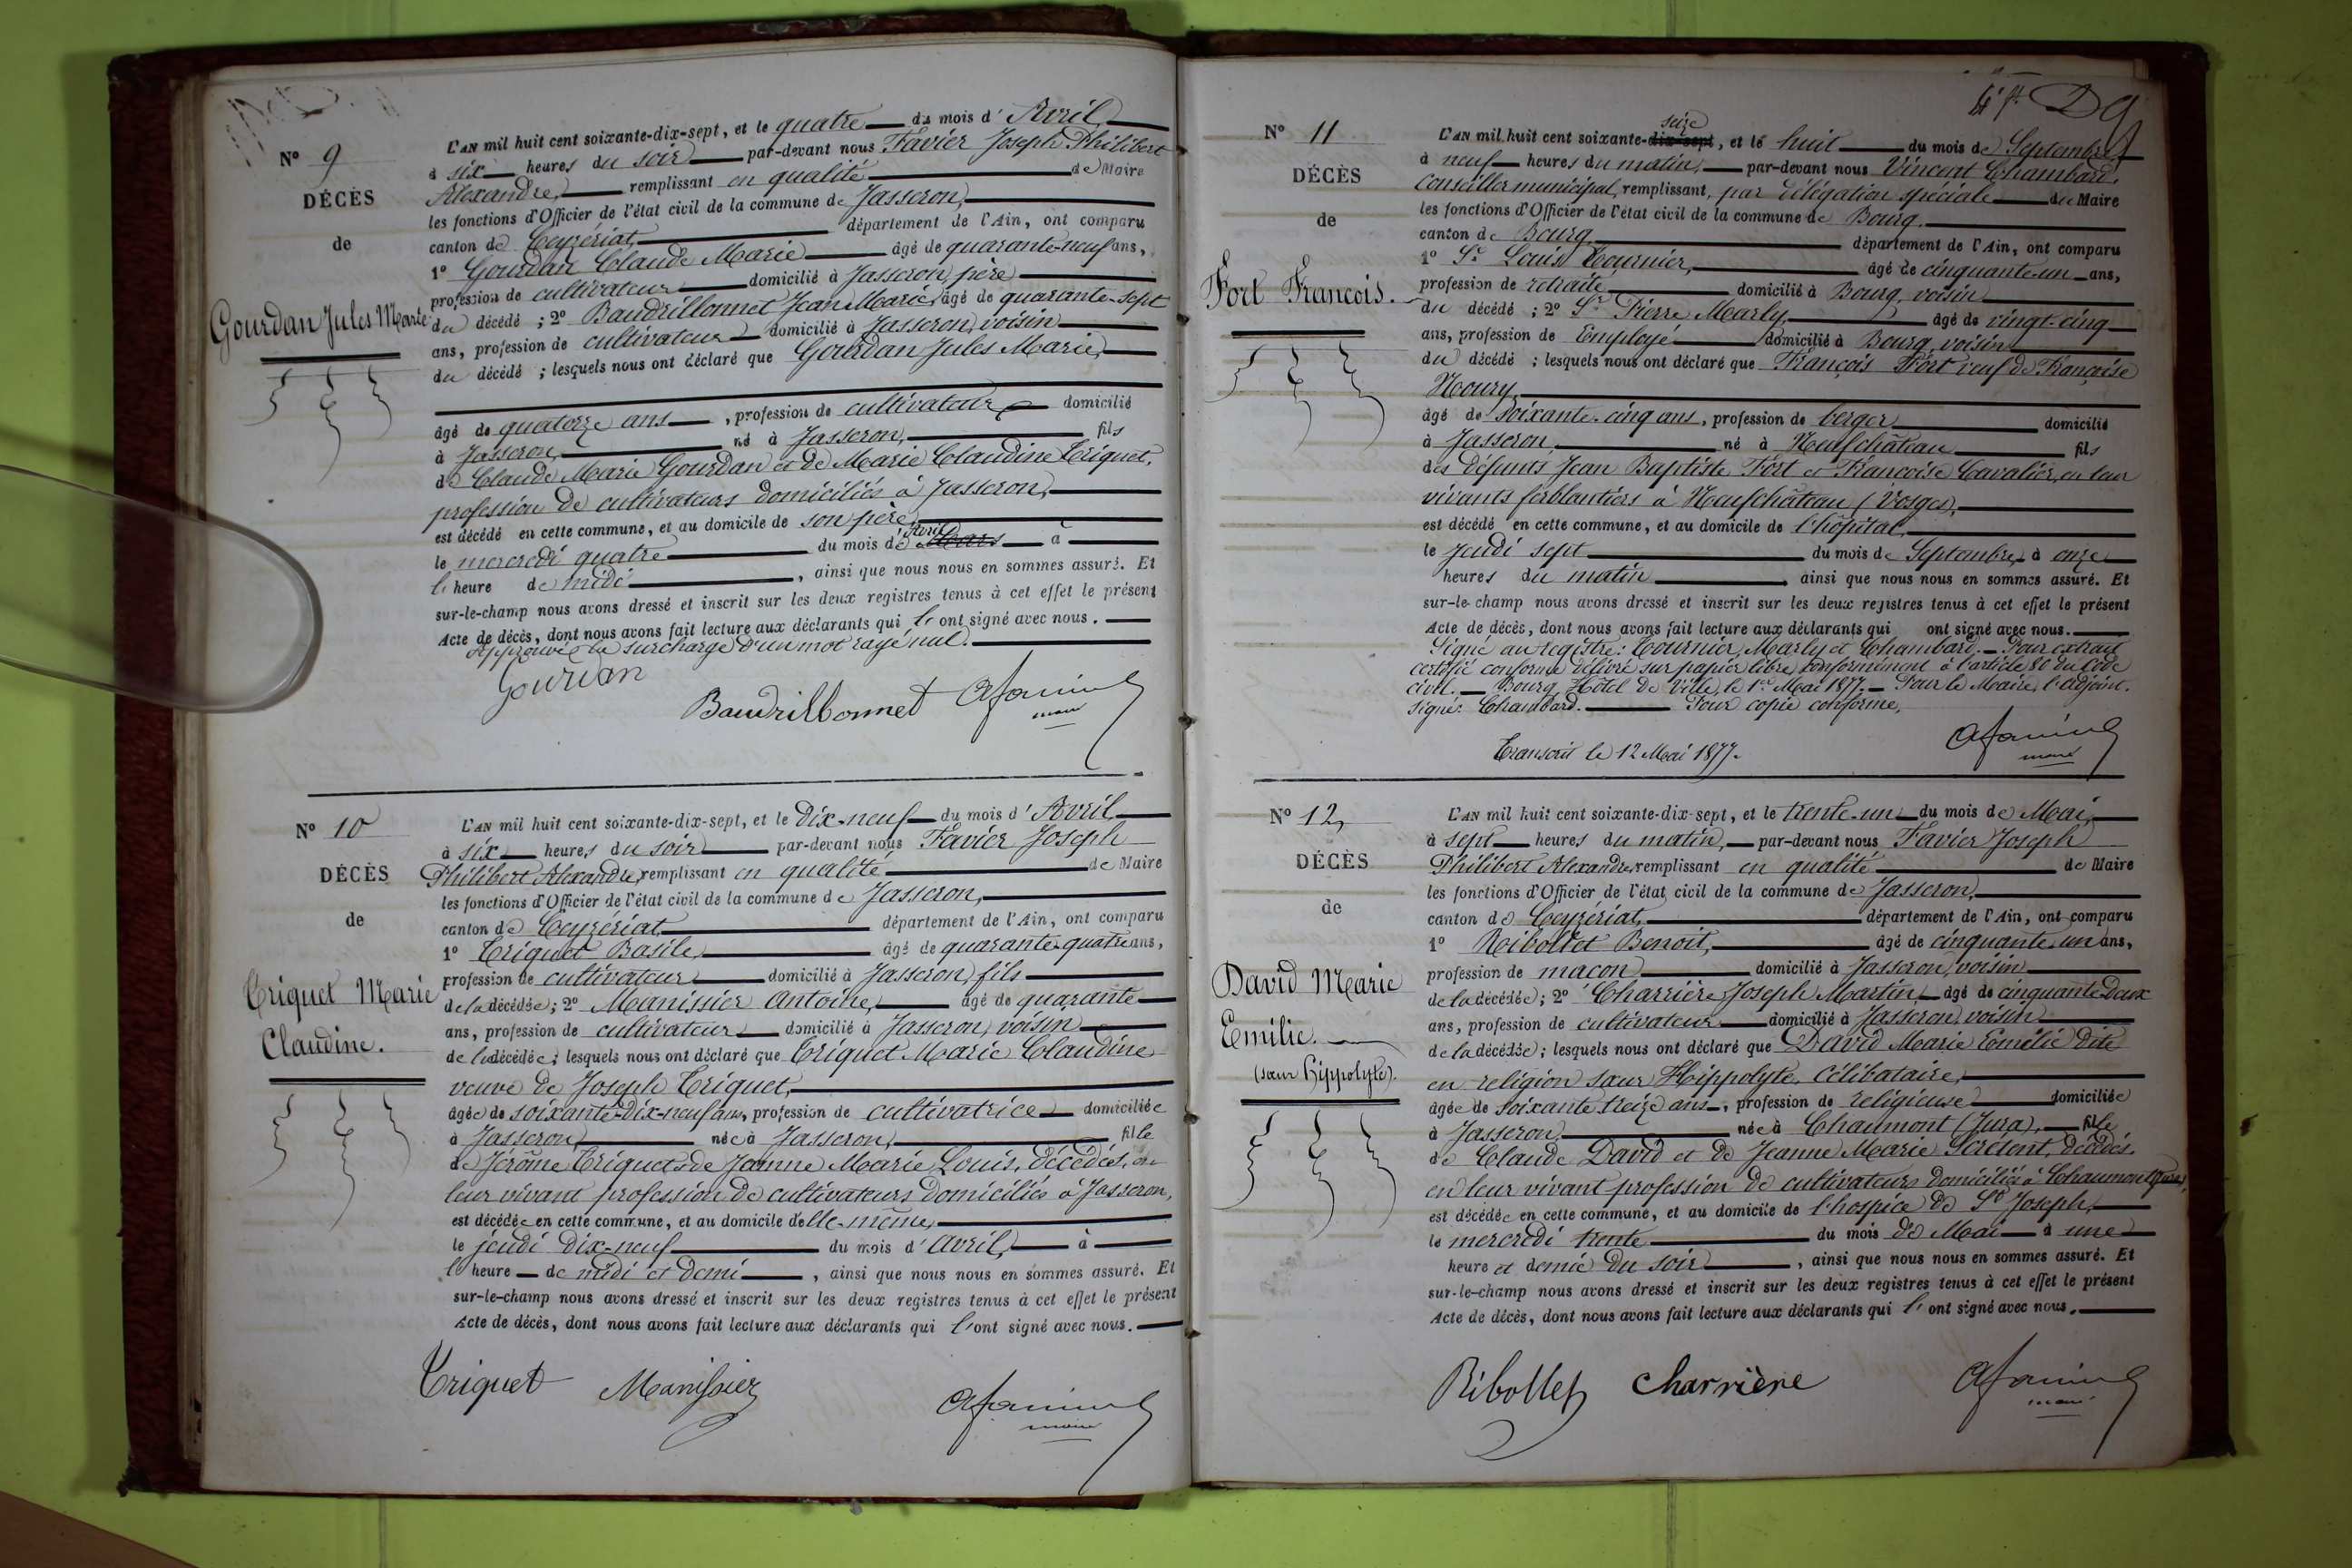 N° 9
DÉCÈS
de
Gourdan Jules Marie
L'AN mil huit cent soixante-dix-sept, et le quatre du mois d'Avril
à six heures du soir par-devant nous Favier Joseph Philibert
Alexandre, remplissant en qualité de Maire
les fonctions d'Officier de l'état civil de la commune de Jasseron,
canton de Ceyzériat, département de l'Ain, ont comparu
1° Gourdan Claude Marie âgé de quarante-neuf ans,
profession de cultivateur domicilié à Jasseron, père
du décédé ; 2° Baudrillonnet Jean Marie, âgé de quarante-sept
ans, profession de cultivateur domicilié à Jasseron, voisin
du décédé ; lesquels nous ont déclaré que Gourdan Jules Marie,
âgé de quatorze ans, profession de cultivateur domicilié
à Jasseron, né à Jasseron, fils
de Claude Marie Gourdan et de Marie Claudine Triquet,
profession de cultivateurs domiciliés à Jasseron,
est décédé en cette commune, et au domicile de son père,
Avril
le mercredi quatre du mois de Mars à
l'heure de midi, ainsi que nous nous en sommes assuré. Et
sur-le-champ nous avons dressé et inscrit sur les deux registres tenus à cet effet le présent
Acte de décès, dont nous avons fait lecture aux déclarants qui l'ont signé avec nous.
Approuvé la surcharge d'un mot rayé nul.
Gourdan
Baudrillonnet Afavier
maire
N° 10
DÉCÈS
de
Triquet Marie
Claudine.
L'AN mil huit cent soixante-dix-sept, et le dix-neuf du mois d'Avril
à six heures du soir par-devant nous Favier Joseph
Philibert Alexandre, remplissant en qualité de Maire
les fonctions d'Officier de l'état civil de la commune de Jasseron,
canton de Ceyzériat, département de l'Ain, ont comparu
1° Triquet Basile, âgé de quarante-quatre ans,
profession de cultivateur domicilié à Jasseron, fils
de la décédée ; 2° Manissier Antoine, âgé de quarante
ans, profession de cultivateur domicilié à Jasseron, voisin
de la décédée ; lesquels nous ont déclaré que Triquet Marie Claudine
veuve de Joseph Triquet,
âgée de soixante-dix-neuf ans, profession de cultivatrice domiciliée
à Jasseron, née à Jasseron, fille
de Jérôme Triquet & de Jeanne Marie Louis, décédés, en
leur vivant profession de cultivateurs domiciliés à Jasseron,
est décédée en cette commune, et au domicile d'elle-même,
le jeudi dix-neuf du mois d'Avril, à
l'heure de midi et demi, ainsi que nous nous en sommes assuré. Et
sur-le-champ nous avons dressé et inscrit sur les deux registres tenus à cet effet le présent
Acte de décès, dont nous avons fait lecture aux déclarants qui l'ont signé avec nous.
Triquet Manissier Afavier
maire
N° 11
DÉCÈS
de
Fort François.
seize
L'AN mil huit cent soixante-dix-sept, et le huit du mois de Septembre
à neuf heures du matin, par-devant nous Vincent Chambard,
Conseiller municipal, remplissant, par délégation spéciale du Maire
les fonctions d'Officier de l'état civil de la commune de Bourg,
canton de Bourg, département de l'Ain, ont comparu
1° Sr Louis Tournier, âgé de cinquante-un ans,
profession de retraité domicilié à Bourg, voisin
du décédé ; 2° Sr Pierre Marly, âgé de vingt-cinq
ans, profession de Employé domicilié à Bourg, voisin
du décédé ; lesquels nous ont déclaré que François Fort veuf de Françoise
Noury,
âgé de soixante-cinq ans, profession de berger domicilié
à Jasseron, né à Neufchâteau fils
des défunts Jean Baptiste Fort et Françoise Cavalier, en leur
vivants ferblantiers à Neufchâteau (Vosges),
est décédé en cette commune, et au domicile de l'hôpital,
le Jeudi sept du mois de Septembre, à onze
heures du matin, ainsi que nous nous en sommes assuré. Et
sur-le-champ nous avons dressé et inscrit sur les deux registres tenus à cet effet le présent
Acte de décès, dont nous avons fait lecture aux déclarants qui ont signé avec nous.
Signé au registre : Tournier, Marly et Chambard. Pour extrait
certifié conforme délivré sur papier libre conformément à l'article 80 du Code
civil. Bourg, Hôtel de Ville, le 1er Mai 1877. Pour le Maire, l'adjoint.
Signé : Chambard. Pour copie conforme,
Afavier
Transcrit le 12 Mai 1877.
maire
N° 12
DÉCÈS
de
David Marie
Emilie.
(sœur Hippolyte).
L'AN mil huit cent soixante-dix-sept, et le trente-un du mois de Mai,
à sept heures du matin, par-devant nous Favier Joseph
Philibert Alexandre, remplissant en qualité de Maire
les fonctions d'Officier de l'état civil de la commune de Jasseron,
canton de Ceyzériat, département de l'Ain, ont comparu
1° Reibollet Benoit, âgé de cinquante un ans,
profession de maçon domicilié à Jasseron, voisin
de la décédée ; 2° Charrière Joseph Martin, âgé de cinquante-deux
ans, profession de cultivateur domicilié à Jasseron, voisin
de la décédée ; lesquels nous ont déclaré que David Marie Emélie dite
en religion sœur Hippolyte, célibataire,
âgée de soixante treize ans, profession de religieuse domiciliée
à Jasseron, née à Chaumont (Jura), fille
de Claude David et de Jeanne Marie décédés,
en leur vivant profession de cultivateurs domiciliés à Chaumont (Jura),
est décédée en cette commune, et au domicile de l'hospice de St Joseph,
le mercredi trente du mois de Mai à une
heure et demie du soir, ainsi que nous nous en sommes assuré. Et
sur-le-champ nous avons dressé et inscrit sur les deux registres tenus à cet effet le présent
Acte de décès, dont nous avons fait lecture aux déclarants qui l'ont signé avec nous.
Ribollet Charrière Afavier
maire